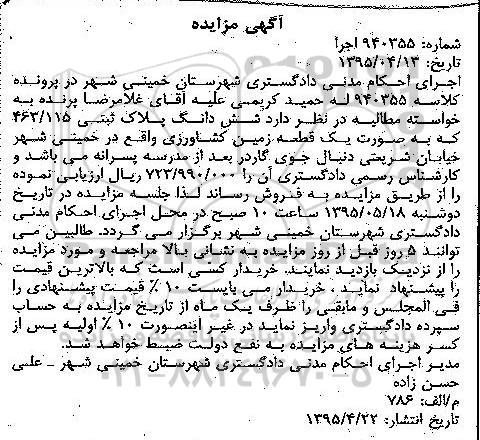 آگهی مزایده
شماره: ۹۴۰۳۵۵ اجرا
تاریخ: ۱۳۹۵/۰۴/۱۳
اجرای احکام مدنی دادگستری شهرستان خمینی شهر در پرونده
کلاسه ۹۴۰۳۵۵ له حمید کریمی علیه آقای غلامرضا پرنده به
خواسته مطالبه در نظر دارد شش دانگ پلاک ثبتی ۴۶۳/۱۱۵
که به صورت یک قطعه زمین کشاورزی واقع در خمینی شهر
خیابان شریعتی دنبال جوی گاردر بعد از مدرسه پسرانه می باشد و
کارشناس رسمی دادگستری آن را ۷۲۳/۹۹۰/۰۰۰ ریال ارزیابی نموده
را از طریق مزایده به فروش رساند لذا جلسه مزایده در تاریخ
دوشنبه ۱۳۹۵/۰۵/۱۸ ساعت ۱۰ صبح در محل اجرای احکام مدنی
دادگستری شهرستان خمینی شهر برگزار می گردد. طالبین می
توانند ۵ روز قبل از روز مزایده به نشانی بالا مراجعه و مورد مزایده
را از نزدیک بازدید نمایند. خریدار کسی است که بالاترین قیمت
را پیشنهاد نماید ، خریدار می بایست ۱۰ ٪ قیمت پیشنهادی را
فی المجلس و مابقی را ظرف یک ماه از تاریخ مزایده به حساب
سپرده دادگستری واریز نماید در غیر اینصورت ۱۰ ٪ اولیه پس از
کسر هزینه های مزایده به نفع دولت ضبط خواهد شد.
مدیر اجرای احکام مدنی دادگستری شهرستان خمینی شهر ـ علی
حسن زاده
م/الف: ۷۸۶
تاریخ انتشار: ۱۳۹۵/۴/۲۲
۰۲۱-۸۸۳۴۹۶۷۰-۵